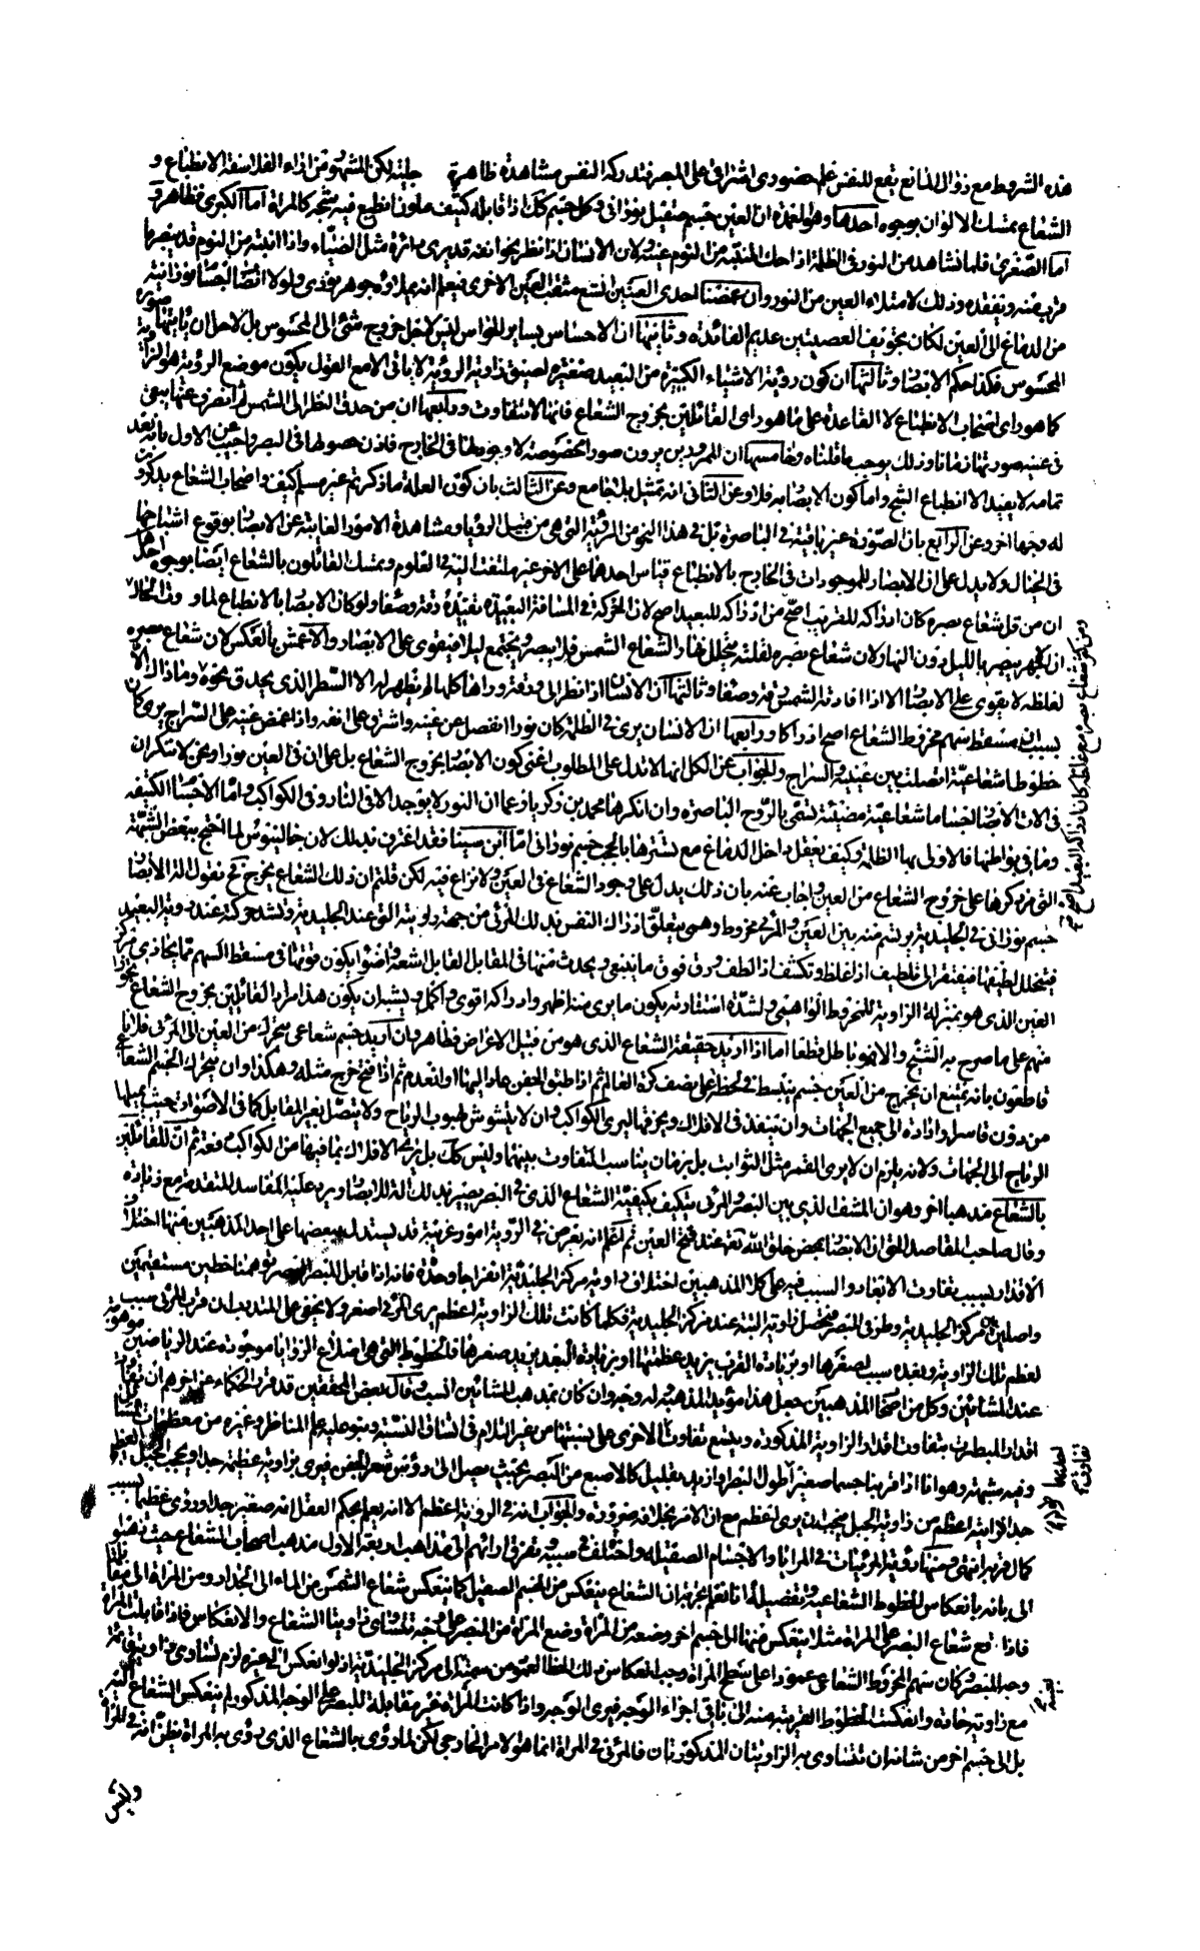 هذه الشروط مع زوال المانع يقع للنفس علم حضورى اشراقى على المبصر فتدركه النفس مشاهدة ظاهرة جلية لكن المشهور من اراء الفلاسفة الانطباع و
الشعاع تمسك الاولون بوجوه احدها وهو العمدة ان العين جسم صقيل نورانى وكل جسم كك اذا قابله كثيف ملون انطبع فيه شبحه كالمرآة اما الكبرى فظاهرة و
اما الصغرى فلما نشاهد من النور فى الظلمة اذا حك المنتبه من النوم عينه ولان الانسان اذا نظر نحو انفه قد يرى دائرة مثل الضياء واذا انتبه من النوم قد يبصر ما
قرب منه ويفقده وذلك لامتلاء العين من النور وان غمضنا احدى العينين اتسع مثقب العين الاخرى فيعلم انه يملاؤه جوهر نورى ولولا انصباب اجسام نورانية
من الدماغ الى العين لكان تجويف العصبتين عديم الفائدة وثانيها ان الاحساس بساير الحواس ليس لاجل خروج شئ الى المحسوس بل لاجل ان يأتيها صورة
المحسوس فكذا حكم الابصار وثالثها ان كون رؤية الاشياء الكبيرة من البعيد صغيرة لضيق زاوية الرؤية لا ياتى الا مع القول بكون موضع الرؤية هو الزاوية
كما هو راى اصحاب الانطباع لا القاعدة على ما هو راى القائلين بخروج الشعاع فانها لا تتفاوت ورابعها ان من حدق النظر الى الشمس ثم انصرف عنها يبقى
فى عينه صورتها زمانا وذلك يوجب ما قلناه وخامسها ان الممرورين يرون صورا مخصوصة لا وجود لها فى الخارج فاذن حصولها فى البصر واجيب عن الاول بانه بعد
تمامه لا يفيد الا انطباع الشبح واما كون الابصار به فلا وعن الثانى انه تمثيل بلا جامع وعن الثالث بان كون العلة ما ذكرتم غير مسلم كيف واصحاب الشعاع يذكرون
له وجها اخر وعن الرابع بان الصورة غير باقية فى الباصرة بل فى هذا النحو من المرئية التى هى من قبيل الرؤيا ومشاهدة الامور الغايبة عن الابصار بوقوع اشباحها
فى الخيال ولا يدل على ان الابصار للموجودات فى الخارج بالانطباع قياس احدهما على الاخر غير ملتفت اليه فى العلوم وتمسك القائلون بالشعاع ايضا بوجوه احدها
ان من قل شعاع بصره كان ادراكه للقريب اصح من ادراكه للبعيد لان الحركة فى المسافة البعيدة تفيده دقة وصفاء ولو كان الابصار بالانطباع لما
ان الاجهر يبصر بالليل دون النهار لان شعاع بصره لقلته يتحلل نهارا لشعاع الشمس فلا يبصر ويجتمع ليلا فيقوى على الابصار والاعمش بالعكس لان شعاع بصره
لغلظه لا يقوى على الابصار الا اذا افادته الشمس رقة وصفاء وثالثها ان الانسان اذا نظر الى ورقة وراها كلها لم يظهر له الا السطر الذى يحدق نحوه وما ذلك الا
بسبب ان مسقط سهم مخروط الشعاع اصح ادراكا ورابعها ان الانسان يرى فى الظلمة كان نورا انفصل عن عينه واشرق على انفه واذا غمض عينه على السراج يرى كان
خطوطا شعاعية اتصلت بين عينيه والسراج والجواب عن الكل انها لا تدل على المطلوب اعنى كون الابصار بخروج الشعاع بل على ان فى العين نورا ونحن لا ننكر ان
فى الات الابصار اجساما شعاعية مضيئة تسمى بالروح الباصرة وان انكرها محمد بن زكريا زعما ان النور لا يوجد الا فى النار وفى الكواكب واما الاجسام الكثيفة
وما فى بواطنها فالاولى بها الظلمة وكيف يعقل داخل الدماغ مع تسترها بالحجب جسم نورانى اما ابن سينا فقد اعترف بذلك لان جالينوس لما احتج ببعض الشبه
التى مر ذكرها على خروج الشعاع من العين واجاب عنه بان ذلك يدل على وجود الشعاع فى العين ولا نزاع فيه لكن قلتم ان ذلك الشعاع يخرج فح نقول الة الابصار
جسم نورانى فى الجليدية يرتسم منه بين العين والمرئى مخروط وهمى يتعلق ادراك النفس بذلك المرئى من جهة زاويته التى عند الجليدية وتشتد حركته عند رؤية البعيد
فيتحلل لطيفها فيفتقر الى تلطيف اذا غلظ وتكثف اذا لطف ورق فوق ما ينبغى ويحدث منها فى المقابل القابل اشعة واضواء يكون قوتها فى مسقط السهم مما يحاذى مركز
العين الذى هو بمنزلة الزاوية للمخروط الواهمى ولشدة استنارته يكون ما يرى منه اظهر وادراكه اقوى واكمل ويشبه ان يكون هذا مراد القائلين بخروج الشعاع تجوزا
منهم على ما صرح به الشيخ والا فهو باطل قطعا اما اذا اريد حقيقة الشعاع الذى هو من قبيل الاعراض فظاهر وان اريد جسم شعاعى يتحرك من العين الى المرئى فلانا
قاطعون بانه يمتنع ان يخرج من العين جسم ينبسط فى لحظة على نصف كرة العالم ثم اذا طبق الجفن عاد اليها او انعدم ثم اذا فتح خرج مثله وهكذا وان يتحرك الجسم الشعاعى
من دون قاسر وارادة الى جميع الجهات وان تنفذ فى الافلاك ويخرقها ليرى الكواكب وان لا يتشوش لهبوب الرياح ولا يتصل بغير المقابل كما فى الاصوات حيث تميلها
الرياح الى الجهات ولانه يلزم ان لا يرى القمر مثل الثوابت بل بزمان يناسب التفاوت بينهما وليس كك بل يرى الافلاك بما فيها من الكواكب دفعة ثم ان للقائلين
بالشعاع مذهبا اخر وهو ان المشف الذى بين البصر والمرئى يتكيف بكيفية الشعاع الذى فى البصر يصير بذلك الة للابصار ويرد عليه المفاسد المتقدمة مع زيادة
وقال صاحب المقاصد الحق ان الابصار بمحض خلق الله تعه عند فتح العين ثم اعلم انه يعرض فى الرؤية امور غريبة قد يستدل ببعضها على احد المذهبين منها اختلاف
الاقدار بسبب تفاوت الابعاد والسبب فيه على كلا المذهبين اختلاف زاوية مركز الجليدية انفراجا وحدة فانه اذا قابل المبصر البصر توهمنا خطين مستقيمين
واصلين بين مركز الجليدية وطرفى المبصر فتحصل زاوية البتة عند مركز الجليدية فكلما كانت تلك الزاوية اعظم يرى المرئى اصغر ولا يخفى على المتدبر ان قرب المرئى سبب
لعظم تلك الزاوية وبعده سبب لصغرها او بزيادة القرب يزيد عظمها او بزيادة البعد يزيد صغرها فالخطوط التى هى اضلاع الزوايا موجودة عند الرياضيين موهومة
عند المشائين وكل من اصحاب المذهبين جعل هذا مؤيدا لمذهبه وله وجه وان كان بمذهب المشائين انسب وقال بعض المحققين قد فرد الحكماء عن اخرهم ان تفاوت
اقدار المبصرات بتفاوت اقدار الزاوية المذكورة ويتبع تفاوت الاخرى على نسبتها من غير انثلام فى اتساق النسبة وبنو عليه علم المناظر وغيره من معظمات
وفيه شبهة وهو انا اذا قربنا جسما صغيرا طول البصر وازيد بقليل كالاصبع من البصر بحيث يصل الى رؤس شعر الجفن فيرى بزاوية عظيمة جدا ويحجب الجبل العظيم
جدا لزاوية اعظم من زاوية الجبل فيجب ان يرى اعظم مع ان الامر بخلافه ضرورة والجواب انه فى الرؤية اعظم الا انه يعلم بحكم العقل انه صغير جدا ورؤى عظيما بسبب
كمال قربه انتهى ومنها رؤية المرئيات فى المرايا والاجسام الصقيلة واختلف فى سببه وتفرق ارائهم الى مذاهب اربعة الاول مذهب اصحاب الشعاع حيث ذهبوا
الى بانه بانعكاس الخطوط الشعاعية وتفصيله انا نعلم تجربة ان الشعاع ينعكس من الجسم الصقيل كما ينعكس شعاع الشمس من الماء الى الجدار ومن المرآة الى مقابلتها
فاذا وقع شعاع البصر على المرآة مثلا ينعكس منها الى جسم اخر وضعه من المرآة وضع المرآة من البصر على وجه تتساوى زاويتا الشعاع والانعكاس فاذا قابلت المرآة
وجه المبصر كان سهم المخروط الشعاعى عمودا على سطح المرآة وجب انعكاس ذلك الخط العمودى من سمته الى مركز الجليدية اذ لو انعكس الى غيره لزم تساوى زاوية قائمة
مع زاوية حادة وانعكست الخطوط القريبة منه الى باقى اجزاء الوجه فيرى الوجه واذا كانت المرآة غير مقابلة للبصر على الوجه المذكور لم ينعكس الشعاع اليه
بل الى جسم اخر من شانه ان تتساوى به الزاويتان المذكورتان فالمرئى فى المرآة انما هو الامر الخارجى لكن لما رؤى بالشعاع الذى رؤى به المرآة يظن انه فى المرآة
وليس